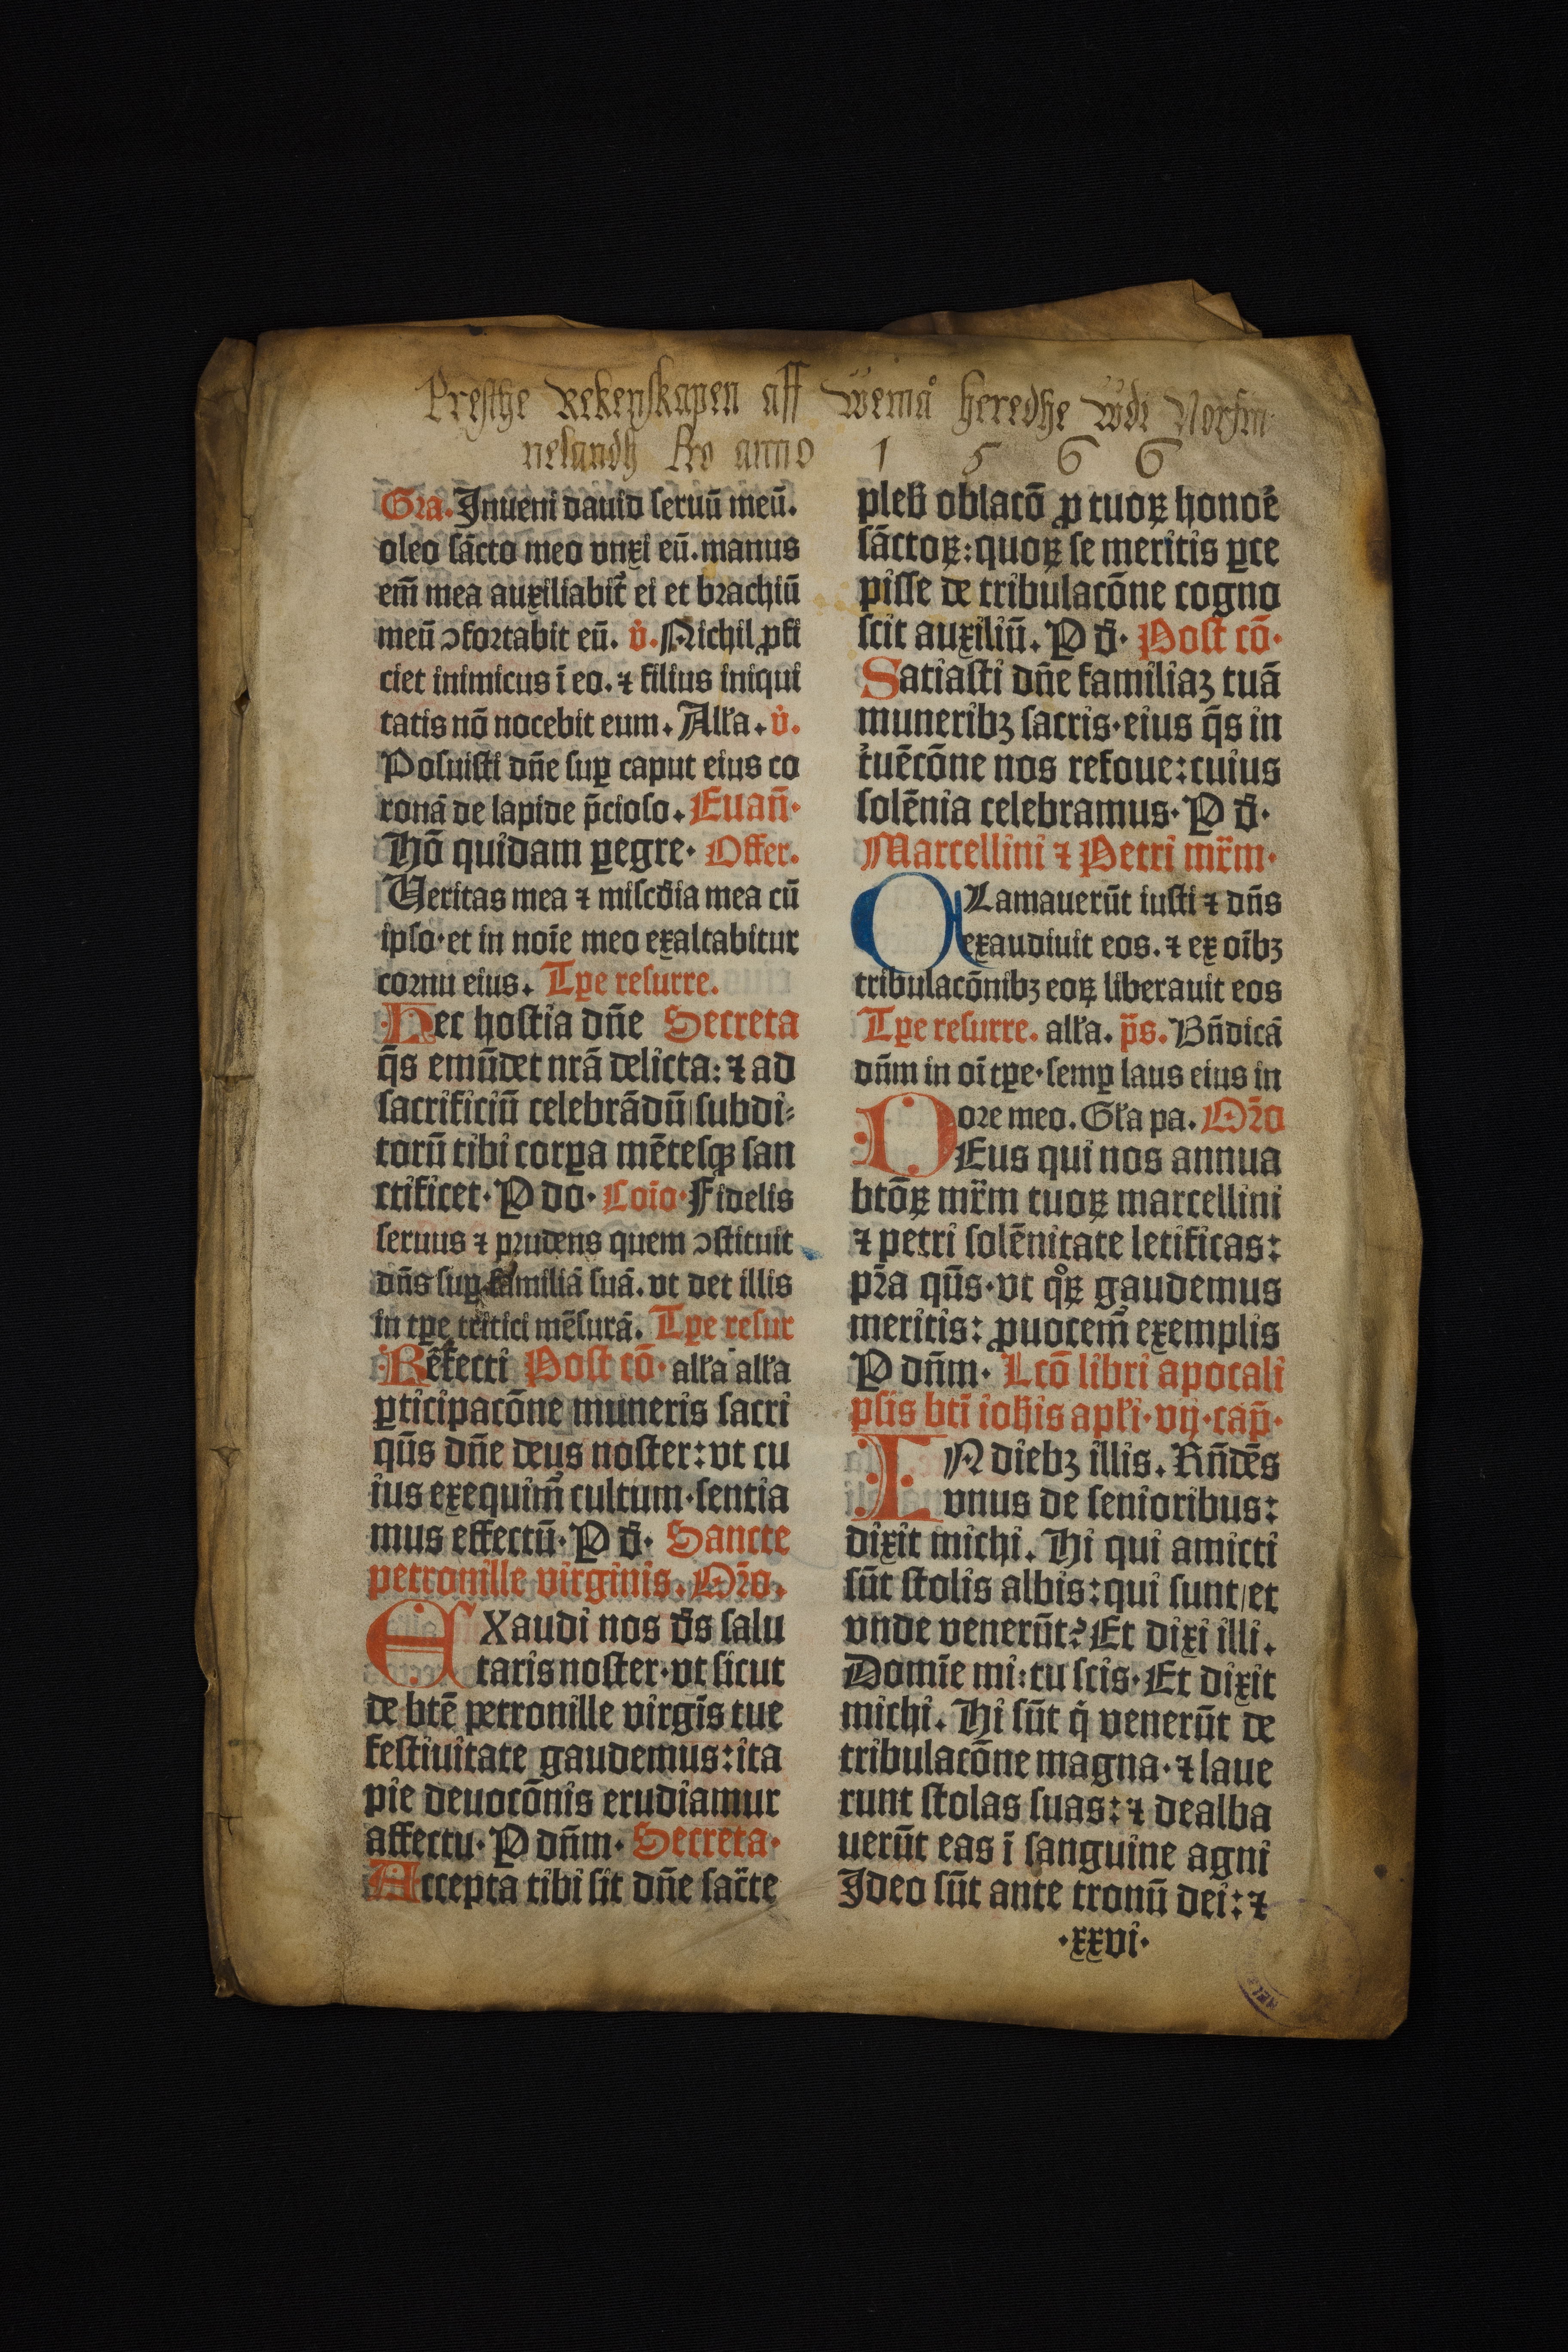 Presthe Rekenskapen aff wemå heredhe wdi Norfin
nelandh pro anno 1 5 6 6
Gra. Inueni dauid seruū meū.
oleo sācto meo vnxi eū. manus
em̄ mea auxiliabit᷑ ei et brachiū
meū ↄfortabit eū. v̇. Nichil ꝓfi
ciet inimicus ī eo. ⁊ filius iniqui
tatis nō nocebit eum. Alľa. v̇.
Posuisti dn̄e suꝑ caput eius co
ronā de lapide p̄cioso. Euan̄.
Hō quidam ꝑegre. Offer.
Ueritas mea ⁊ misc̄dia mea cū
ipso. et in noīe meo exaltabitur
cornu eius. Tꝑe resurre.
Hec hostia dn̄e Secreta
q̄s emūdet nrā delicta: ⁊ ad
sacrificiū celebrādū/subdi⸗
torū tibi corꝑa mētesqꝫ san
ctificet. P do. Coīo. Fidelis
seruus ⁊ prudens quem ↄstituit
dn̄s suꝑ familiā suā. vt det illis
in tꝑe tritici mēsurā. Tꝑe resur
Refecti Post cō. alľa alľa
ꝑticipacōne muneris sacri
qū̄s dn̄e deus noster: vt cu
ius exequim᷑ cultum. sentia
mus effectū. P đ. Sancte
petronille virginis. Or̄o.
EXaudi nos d̄s salu
taris noster. vt sicut
de btē petronille virgīs tue
festiuitate gaudemus: ita
pie deuocōnis erudiamur
affectu. P dn̄m. Secreta.
Accepta tibi sit dn̄e sac̄te
pleƀ oblacō ꝓ tuoꝝ honoē
sāctoꝝ: quoꝝ se meritis ꝑce
pisse de tribulacōne cogno
scit auxiliū. P đ. Post cō.
Satiasti dn̄e familiaꝫ tuā
muneribꝫ sacris. eius q̄s in
t᷑uēcōne nos refoue: cuius
solēnia celebramus. P đ.
Marcellini ⁊ Petri mr̄m.
CLamauerūt iusti ⁊ dn̄s
exaudiuit eos. ⁊ ex oībꝫ
tribulacōnibꝫ eoꝝ liberauit eos
Tꝑe resurre. alľa. p̄s. Bn̄dicā
dn̄m in oī tꝑe. semꝑ laus eius in
ore meo. Gľa pa. Or̄o
DEus qui nos annua
btōꝝ mr̄m tuoꝝ marcellini
⁊ petri solēnitate letificas:
pr̄a qū̄s. vt qͦꝝ gaudemus
meritis: ꝓuocem᷑ exemplis
P dn̄m. Lcō libri apocali
psis btī ioħis apľi. vij. cap̄.
IN diebꝫ illis. Rn̄dēs
vnus de senioribus:
dixit michi. Hi qui amicti
sūt stolis albis: qui sunt/et
vnde venerūt? Et dixi illi.
Domīe mi: tu scis. Et dixit
michi. Hi sūt q̇ venerūt de
tribulacōne magna. ⁊ laue
runt stolas suas: ⁊ dealba
uerūt eas ī sanguine agni
Ideo sūt ante tronū dei: ⁊
.xxvi.